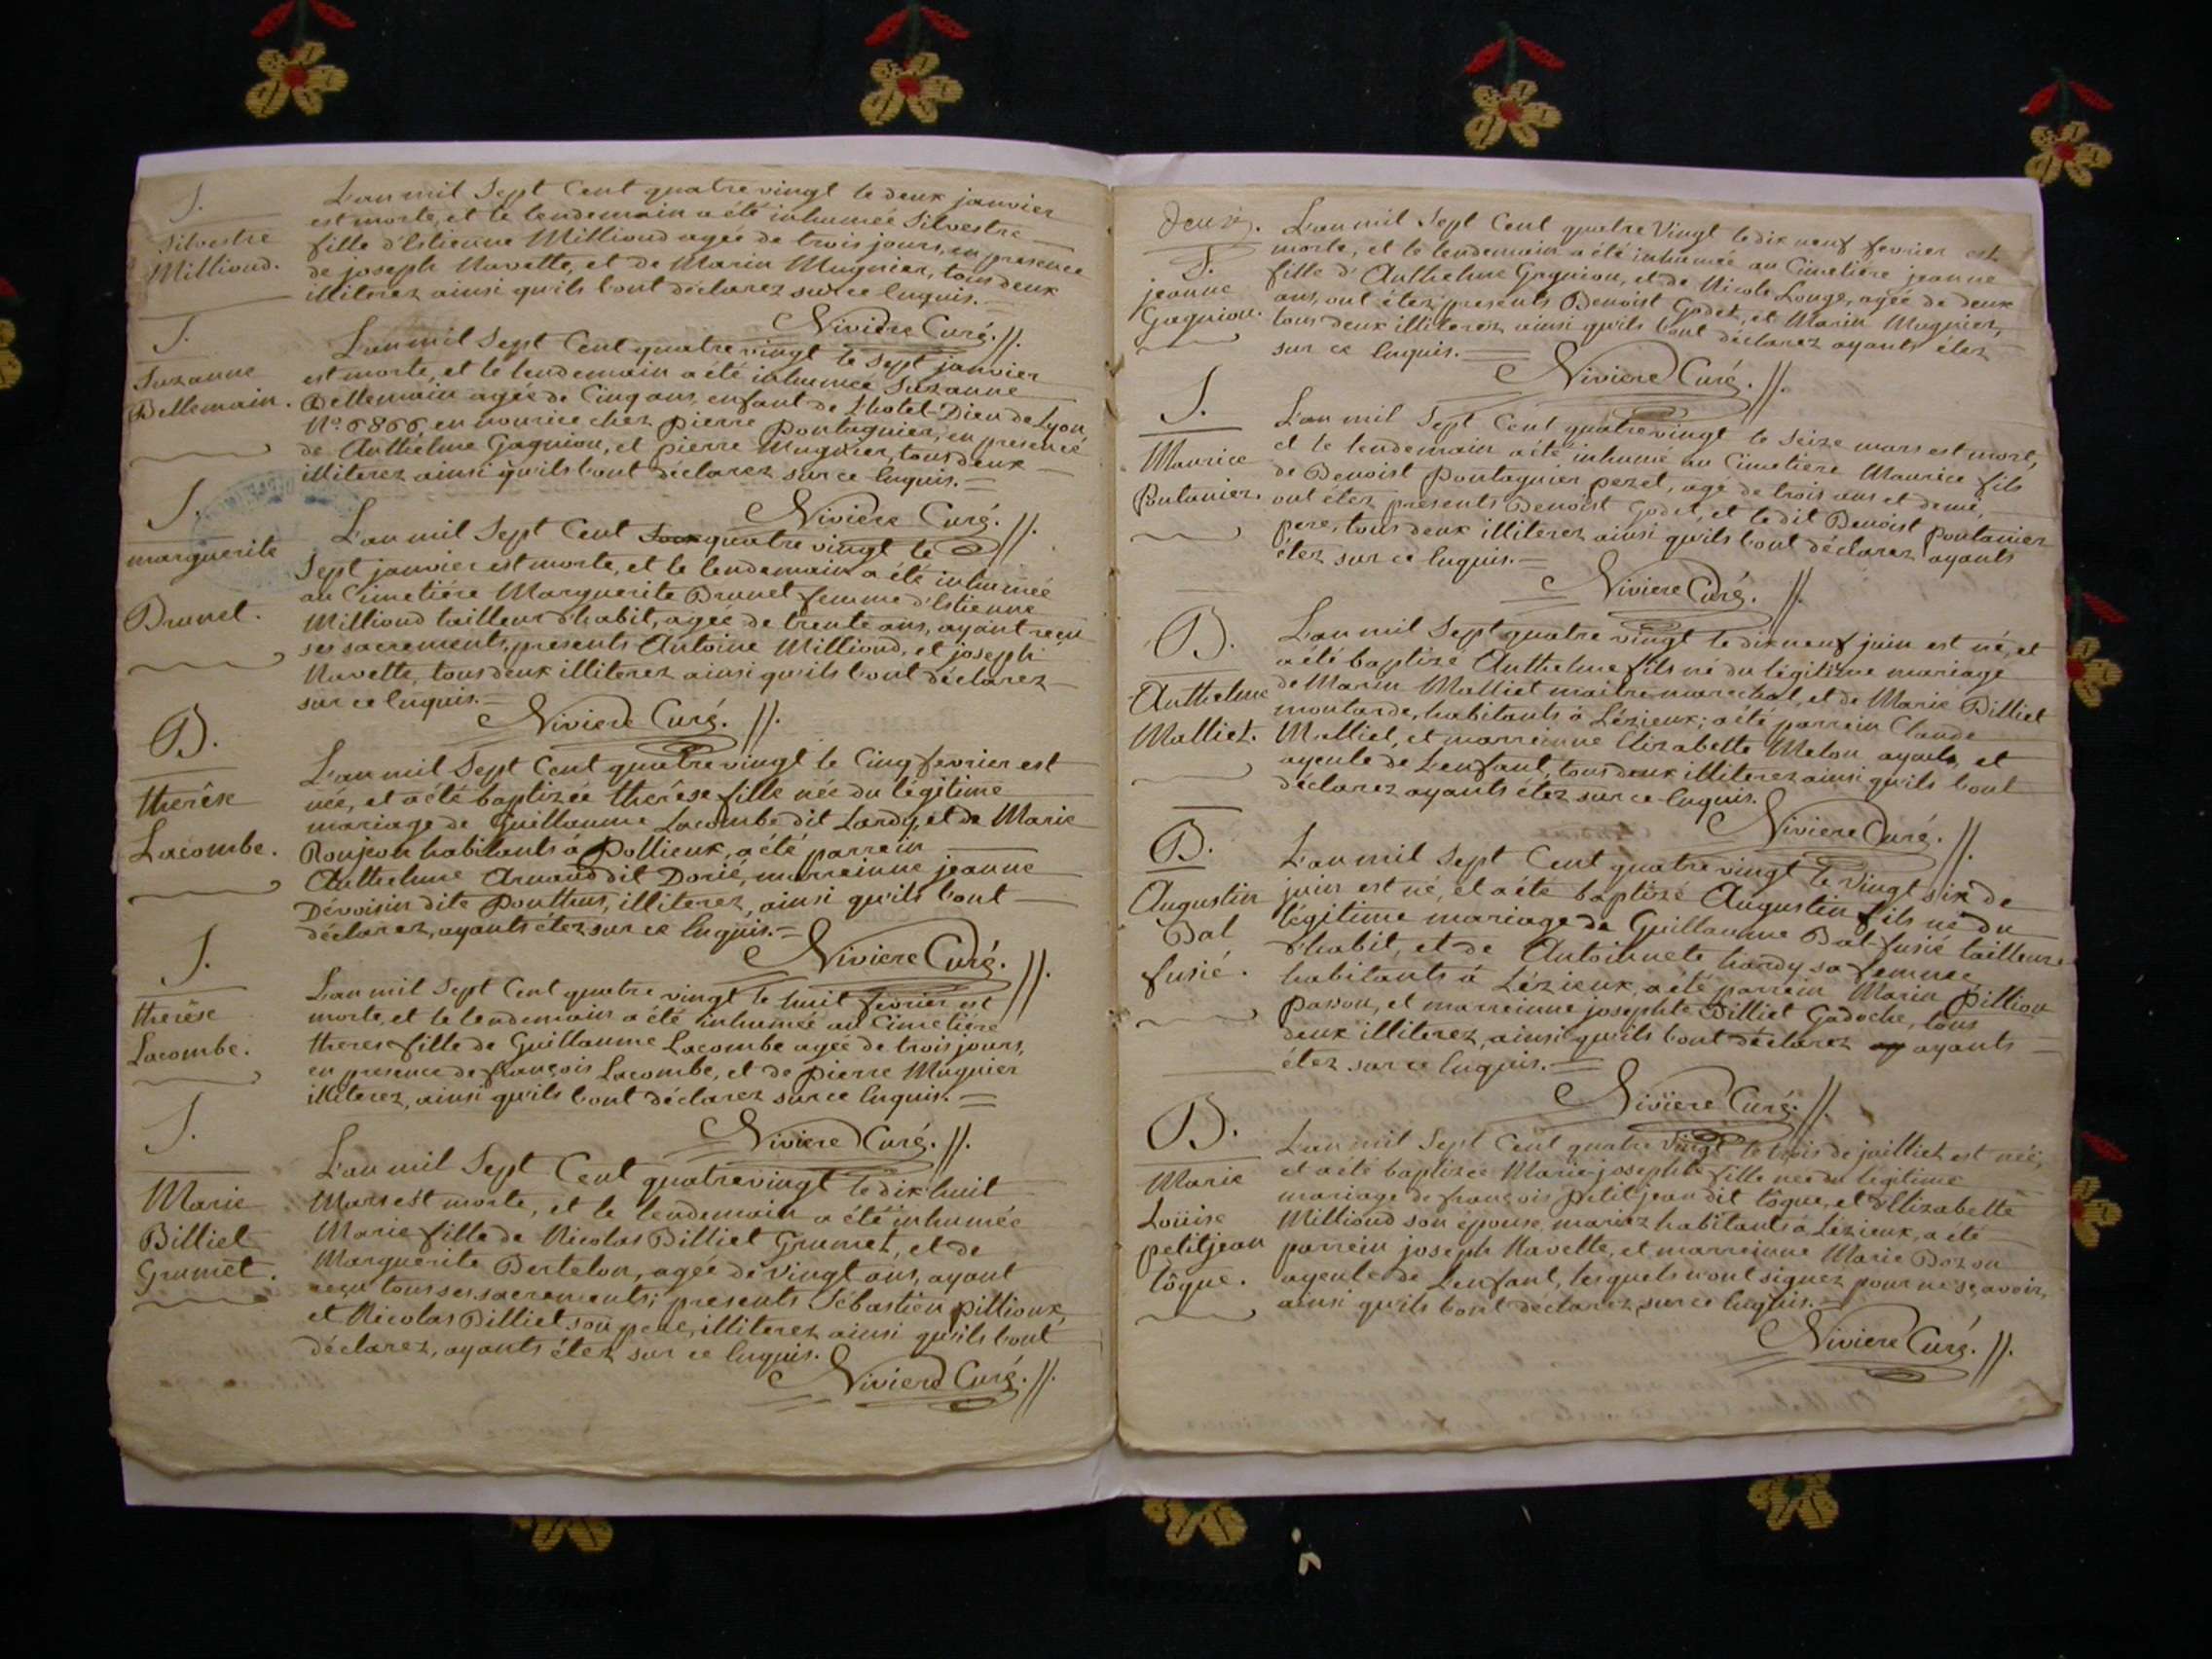 S.
Silvestre
Milliond.
L'an mil Sept Cent quatre vingt le deux janvier
est morte, et le lendemain a été inhumée Silvestre
fille d'Estienne Milliond agée de trois jours, en presence
de joseph Navette, et de Marin Mugnier, tous deux
illiterez ainsi qu'ils l'ont déclarez sur ce Enquis.
Niviere Curé.
S.
Suzanne
Bellemain.
L'an mil Sept Cent quatre vingt le sept janvier
est morte, et le lendemain a été inhumée Suzanne
Bellemain agée de Cinq ans, enfant de L'hotel-Dieu de Lyon
N° 6866 en nourice chez pierre pontagnier, en presence
de Anthelme Gagniou, et pierre Mugnier, tous deux
illiterez ainsi qu'ils l'ont déclarez sur ce Enquis.
Niviere Curé.
S.
marguerite
Brunet.
L'an mil Sept Cent quatre vingt le
Sept janvier est morte, et le lendemain a été inhumée
au Cimetiére Marguerite Brunet femme d'Estienne
Milliond tailleur d'habit, agée de trente ans, ayant reçu
ses sacrements, presents Antoine Milliond, et joseph
Navette, tous deux illiterez ainsi qu'ils l'ont déclarez
sur ce Enquis.
Niviere Curé.
B.
therêse
Lacombe.
L'an mil Sept Cent quatre vingt le Cinq fevrier est
née, et a été baptizée therêse fille née du légitime
mariage de Guillaume Lacombe dit Lardy, et de Marie
Roujeon habitants á Pollieux, a été parrein
Anthelme Arnaud dit Dorié, marreinne jeanne
Dévoisin dite Ponthus, illiterez, ainsi qu'ils l'ont
déclarez, ayants étez sur ce Enquis.
Niviere Curé.
S.
therêse
Lacombe.
L'an mil Sept Cent quatre vingt le huit fevrier est
morte, et le lendemain a été inhumée au Cimetiére
therese fille de Guillaume Lacombe agée de trois jours,
en presence de françois Lacombe, et de pierre Mugnier
illiterez, ainsi qu'ils l'ont déclarez sur ce Enquis.
Niviere Curé.
S.
Marie
Billiet
Grumet.
L'an mil Sept Cent quatre vingt le dix huit
Mars est morte, et le lendemain a été inhumée
Marie fille de Nicolas Billiet Grumet, et de
Marguerite Bertelon, agée de vingt ans, ayant
reçu tous ses sacrements; presents Sébastien pillioux,
et Nicolas Billiet son pere, illiterez ainsi qu'ils l'ont
déclarez, ayants étez sur ce Enquis.
Niviere Curé.
S.
jeanne
Gagniou.
L'an mil Sept Cent quatre Vingt le dix neuf fevrier est
morte, et le lendemain a été inhumée au Cimetiére jeanne
fille d'Anthelme Gagniou, et de Nicole Longe, agée de deux
ans, ont étez presents Benoist Godet, et Marin Mugnier,
tous deux illiterez ainsi qu'ils l'ont déclarez ayants étez
sur ce Enquis.
Niviere Curé.
S.
Maurice
Pontanier.
L'an mil Sept Cent quatre vingt le Seize mars est mort,
et le lendemain a été inhumé au Cimetiére Maurice fils
de Benoist Pontagnier pezet, agé de trois ans et demi,
ont étez presents Benoist Godet, et le dit Benoist Pontanier
pere, tous deux illiterez ainsi qu'ils l'ont déclarez ayants
étez sur ce Enquis.
Niviere Curé.
B.
Anthelme
Malliet.
L'an mil Sept quatre vingt le dix neuf juin est né, et
a été baptizé Anthelme fils né du légitime mariage
de Marin Malliet maitre marechal, et de Marie Billiet
moutarde, habitants á Lézieux; a été parrein Claude
Malliet, et marreinne Elizabette Melon ayeuls, et
ayeule de L'enfant, tous deux illiterez ainsi qu'ils l'ont
déclarez ayants étez sur ce Enquis.
Niviere Curé.
B.
Augustin
Bal
fusié.
L'an mil Sept Cent quatre vingt le vingt six de
juin est né, et a été baptizé Augustin fils né du
légitime mariage de Guillaume Bal-fusié tailleur
d'habit, et de Antoinnete hardy sa femme
habitants á Lézieux, a été parrein Marin Pilliou
Passou, et marreinne josephte Billiet Gadoche, tous
deux illiterez, ainsi qu'ils l'ont déclarez ayants
étez sur ce Enquis.
Niviere Curé.
B.
Marie
Loüise
petitjean
tôgue.
L'an mil Sept Cent quatre vingt le trois de juilliet est née,
et a été baptizée Marie-josephte fille née du légitime
mariage de françois petitjean dit tôgue, et d'Elizabette
Milliond son épouse, mariez habitants á Lézieux, a été
parrein joseph Navette, et marreinne Marie Bozon
ayeule de L'enfant, lesquels n'ont signez pour ne sçavoir,
ainsi qu'ils l'ont déclarez sur ce Enquis.
Niviere Curé.